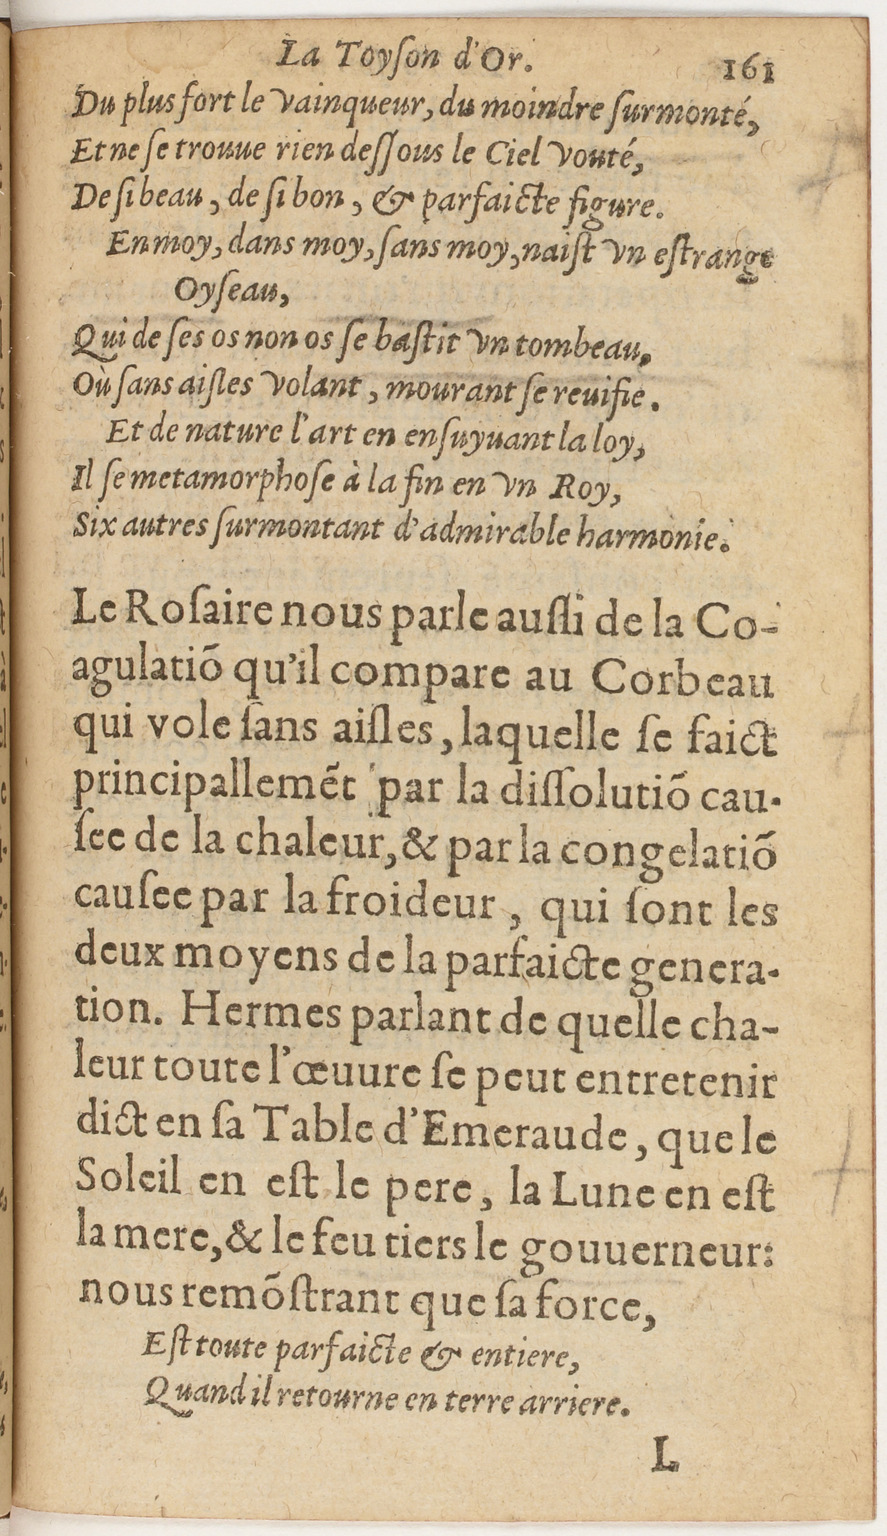 La Toyſon d'Or. 161
Du plus fort le vainqueur, du moindre ſurmonté,
Et ne ſe trouue rien deſſous le Ciel vouté,
De ſi beau, de ſi bon, & parfaicte figure.
En moy, dans moy, ſans moy, naiſt vn eſtrange
Oyſeau,
Qui de ſes os non os ſe baſtit vn tombeau,
Où ſans aiſles volant, mourant ſe reuifie.
Et de nature l'art en enſuyuant la loy,
Il ſe metamorphoſe à la fin en vn Roy,
Six autres ſurmontant d'admirable harmonie.
Le Roſaire nous parle auſſi de la Co-
agulatiõ qu'il compare au Corbeau
qui vole ſans aiſles, laquelle ſe faict
principallemẽt par la diſſolutiõ cau-
ſee de la chaleur, & par la congelatiõ
cauſee par la froideur, qui ſont les
deux moyens de la parfaicte genera-
tion. Hermes parlant de quelle cha-
leur toute l'œuure ſe peut entretenir
dict en ſa Table d'Emeraude, que le
Soleil en eſt le pere, la Lune en eſt
la mere, & le feu tiers le gouuerneur:
nous remõſtrant que ſa force,
Eſt toute parfaicte & entiere,
Quand il retourne en terre arriere.
L